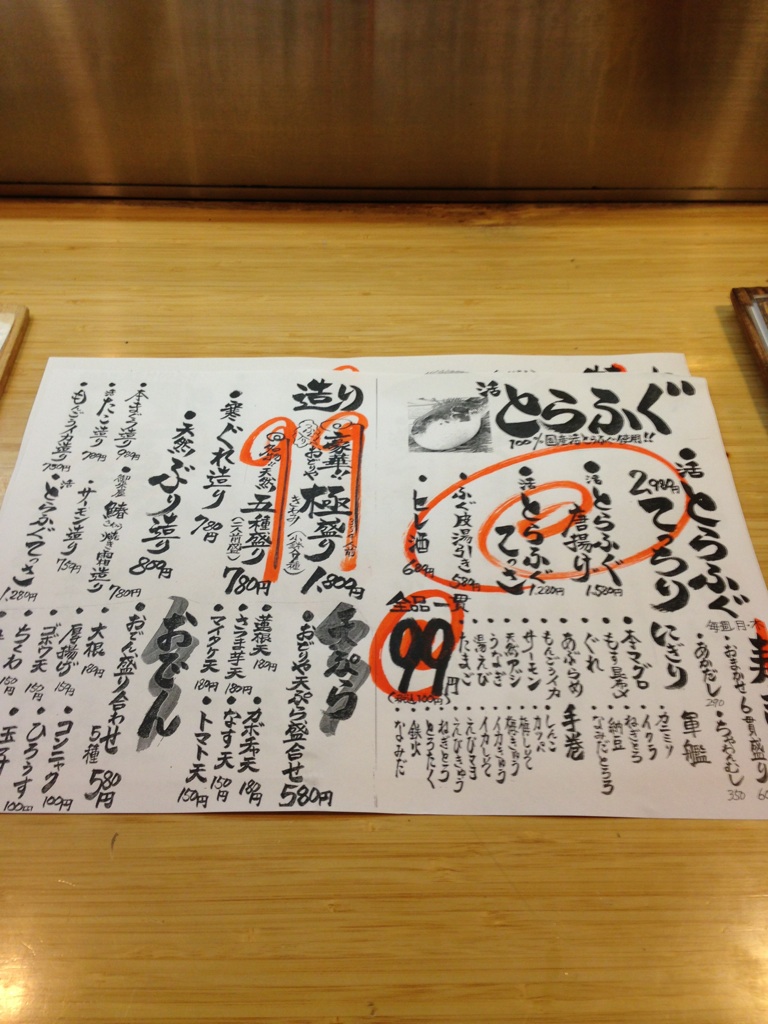 活とらふぐ
100%国産活とらふぐ使用!!
・活とらふぐてっちり
2,980円
・活とらふぐ唐揚げ
1,580円
・活とらふぐてっさ
1,280円
・ふぐ皮湯引き
580円
・ヒレ酒
680円
毎週月・木
おまかせ6貫盛り
・あかだし
290
・ちゃわんむし
350
全品一貫
99円
(税込100円)
にぎり
・本マグロ
・ぐれ
・あぶらめ
・もんごうイカ
・サーモン
・天然アジ
・うなぎ
・湯えび
・たまご
軍艦
・カニミソ
・イクラ
・ねぎとろ
・納豆
・なみだとろろ
手巻
・しんこ
・カッパ
・梅しそ
・梅きゅう
・イカきゅう
・イカしそ
・えびマヨ
・えびきゅう
・ねぎとろ
・とろたく
・鉄火
・なみだ
造り
豪華!!極盛り
1,800円
天然五種盛り
780円
・寒ぐれ造り
780円
・天然ぶり造り
800円
・本まぐろ造り
980円
・鰆焼き霜造り
780円
・活たこ造り
780円
・サーモン造り
750円
・もんごうイカ造り
750円
・活とらふぐてっさ
1,280円
天ぷら
・おどりや天ぷら盛合せ
580円
・蓮根天
180円
・カボチャ天
180円
・さつま芋天
180円
・なす天
150円
・マイタケ天
180円
・トマト天
150円
おでん
・おでん盛り合わせ
5種
580円
・大根
180円
・コンニャク
100円
・厚揚げ
150円
・ひろうす
100円
・ゴボウ天
150円
・ちくわ
150円
・玉子
100円